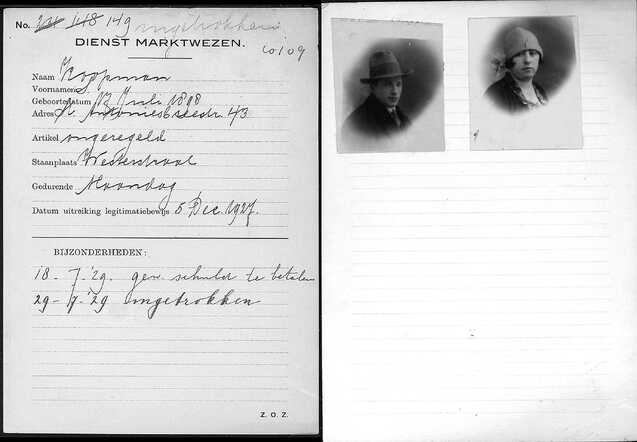 No. 148 149 ingetrokken
DIENST MARKTWEZEN.
60109
Naam Koopman
Voornamen S.
Geboortedatum 12 Juli 1898
Adres St. Antoniesbreestr. 43
Artikel ongeregeld
Staanplaats Westerstraat
Gedurende Maandag
Datum uitreiking legitimatiebewijs 5 Dec. 1927.
BIJZONDERHEDEN:
18 - 7 - '29. gew. schuld te betalen
29 - 7 - '29 ingetrokken
Z. O. Z.